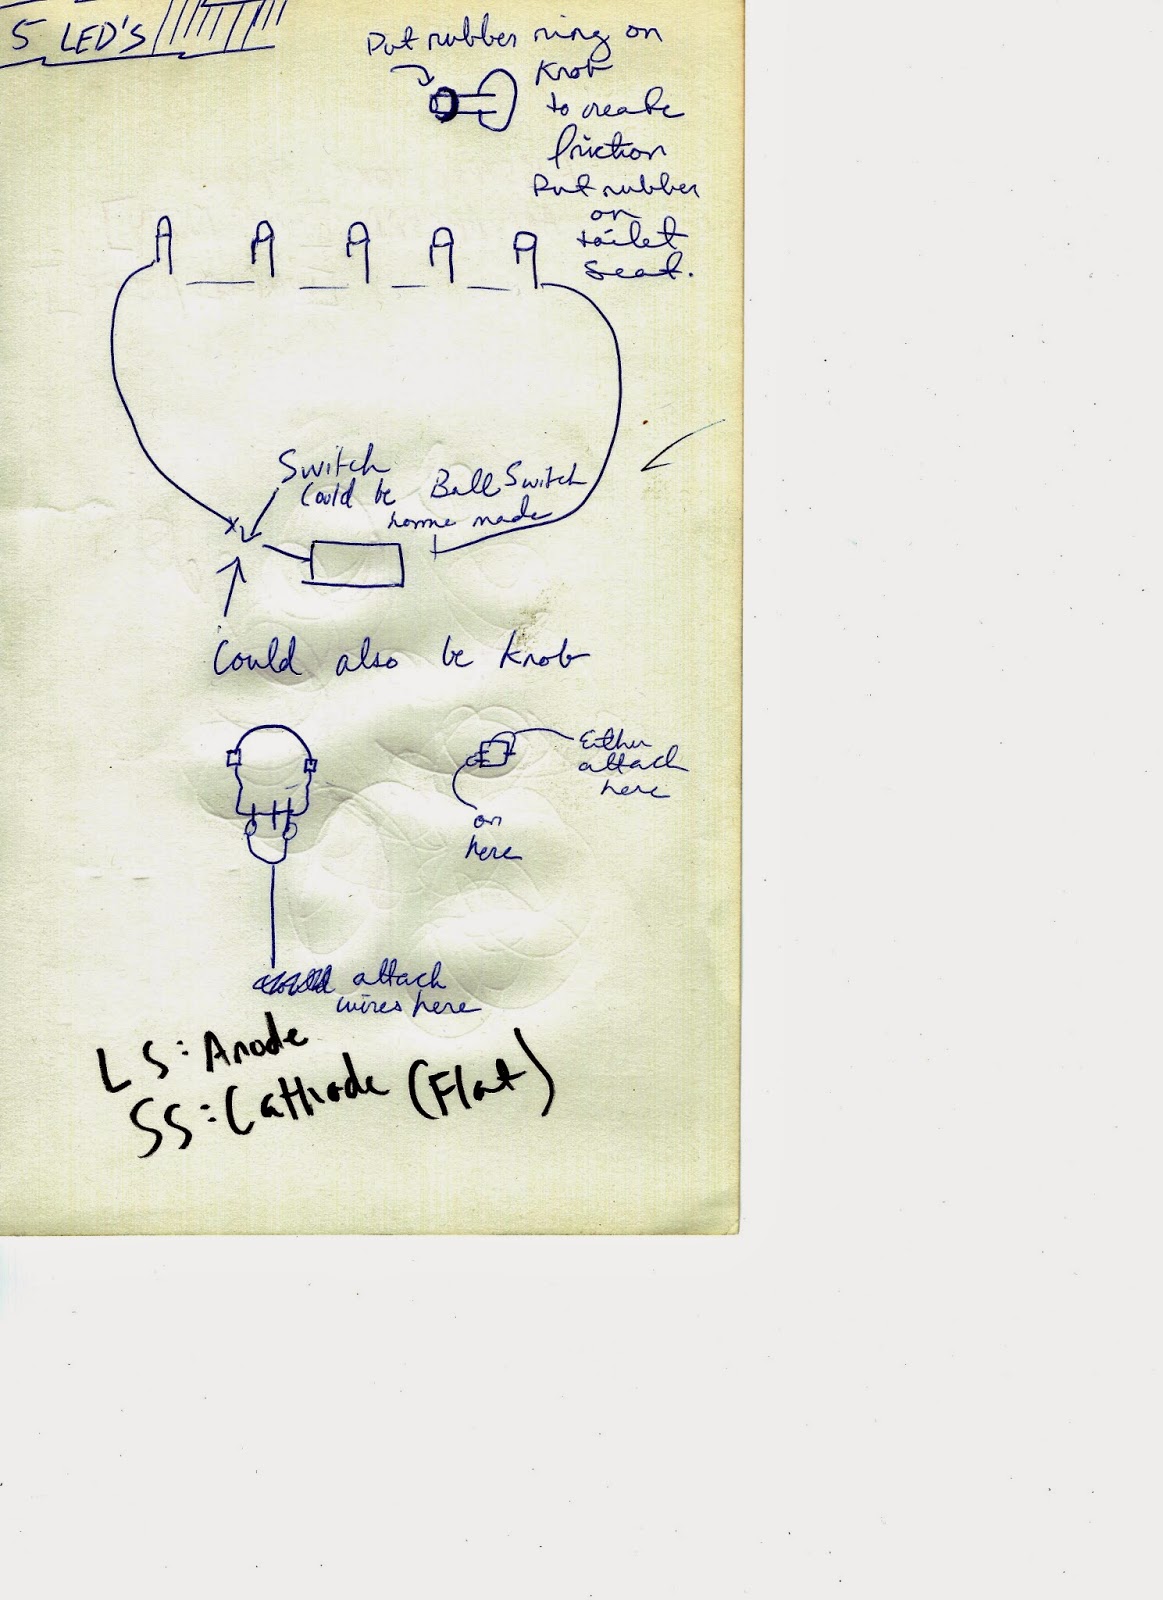 5 LED'S
Put rubber ring on
Knob
to create
friction
Put rubber
on
toilet
seat.
Switch
Could be
Ball Switch
home made
Could also be Knob
Either
attach
here
or
here
attach
wires here
LS: Anode
SS: Cathode (Flat)